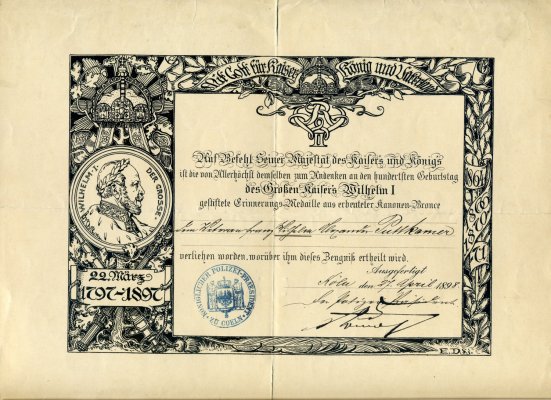 Mit Gott für Kaiser, König und Vaterland
WILHELM I. DER GROSSE
22. März
1797-1897
Auf Befehl Seiner Majestät des Kaisers und Königs
ist die von Allerhöchst demselben zum Andenken an den hundertsten Geburtstag
des Großen Kaisers Wilhelm I
gestiftete Erinnerungs-Medaille aus erbeuteter Kanonen-Bronce
Alexander Puttkamer
verliehen worden, worüber ihm dieses Zeugniß ertheilt wird.
Ausgefertigt
Köln den 27 April 1898.
KOENIGLICHER POLIZEI-PRÄSIDENT
ZU COELN
1864
E.D.